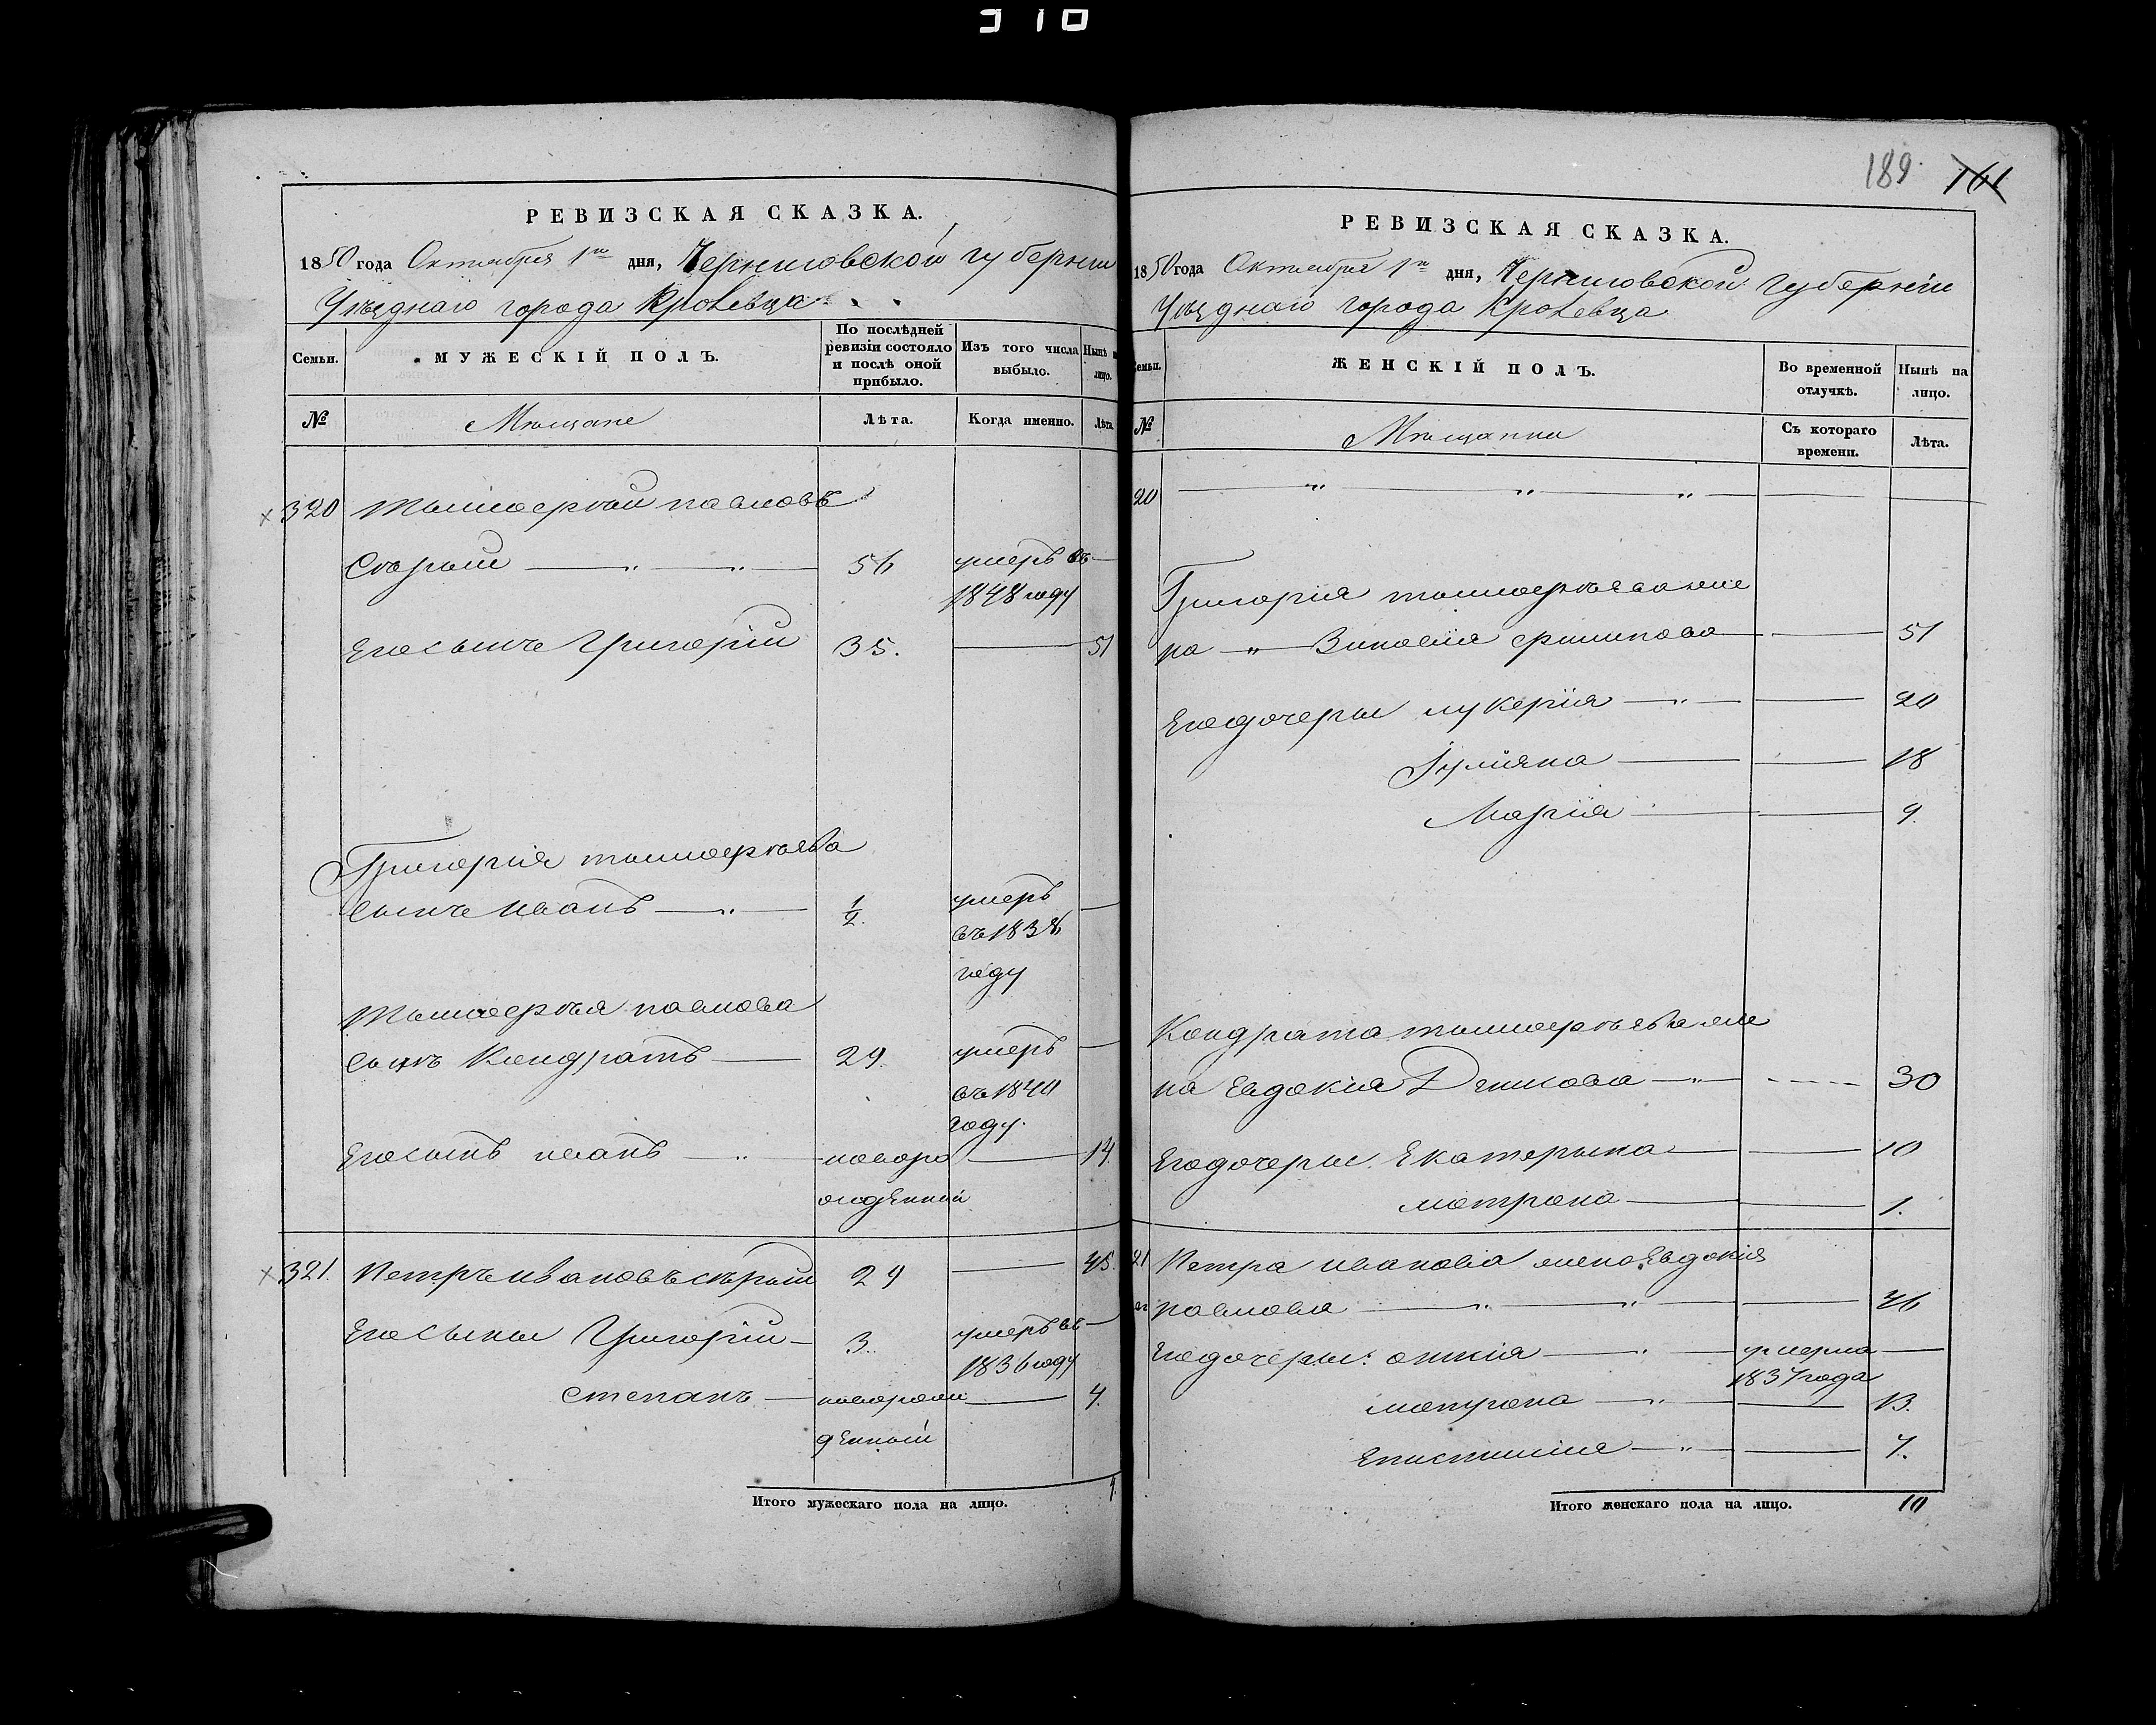 310
РЕВИЗСКАЯ СКАЗКА.
1850 года Октября 1го дня, Черниговской губерніи
Уѣзднаго города Кролевца
Семьи.
МУЖЕСКІЙ ПОЛЪ.
По послѣдней ревизіи состояло и послѣ оной прибыло.
Изъ того числа выбыло.
Нынѣ на лицо.
№
Мѣщане
Лѣта.
Когда именно.
Лѣта.
320 Тимоерѣй павловъ
Сѣрый 56 умеръ въ
1848 году
Его сынъ Григорій 35. 51
Григорія
сынъ иванъ ½ умеръ
въ 1838
году
павлова
сынъ Кондратъ 29. умеръ
въ 1840
году.
Его сынъ иванъ новоро 14.
жденный
321. Петръ ивановъ сѣрый 29 45.
Его сыны Григорій 3. умеръ въ
1836 году
степанъ новорож 4.
денный
Итого мужескаго пола на лицо.
189. 161
РЕВИЗСКАЯ СКАЗКА.
1850 года Октября 1го дня, Черниговской Губерніи
Уѣзднаго города Кролевца
Семьи.
ЖЕНСКІЙ ПОЛЪ.
Во временной отлучкѣ.
Нынѣ на лицо.
№
Мѣщанки
Съ котораго времени.
Лѣта.
20
Григорія же
на 51
Его дочеры лукерія 20
Іуліяна 18
Марія 9.
Кондрата же
на Евдокія 30
Его дочеры Екатерына 10
матрона 1.
21 Петра иванова жена Евдокія
павлова 46
Его дочеры: умерла
1837 года
матрона 13.
Епистимія 7.
Итого женскаго пола на лицо. 10